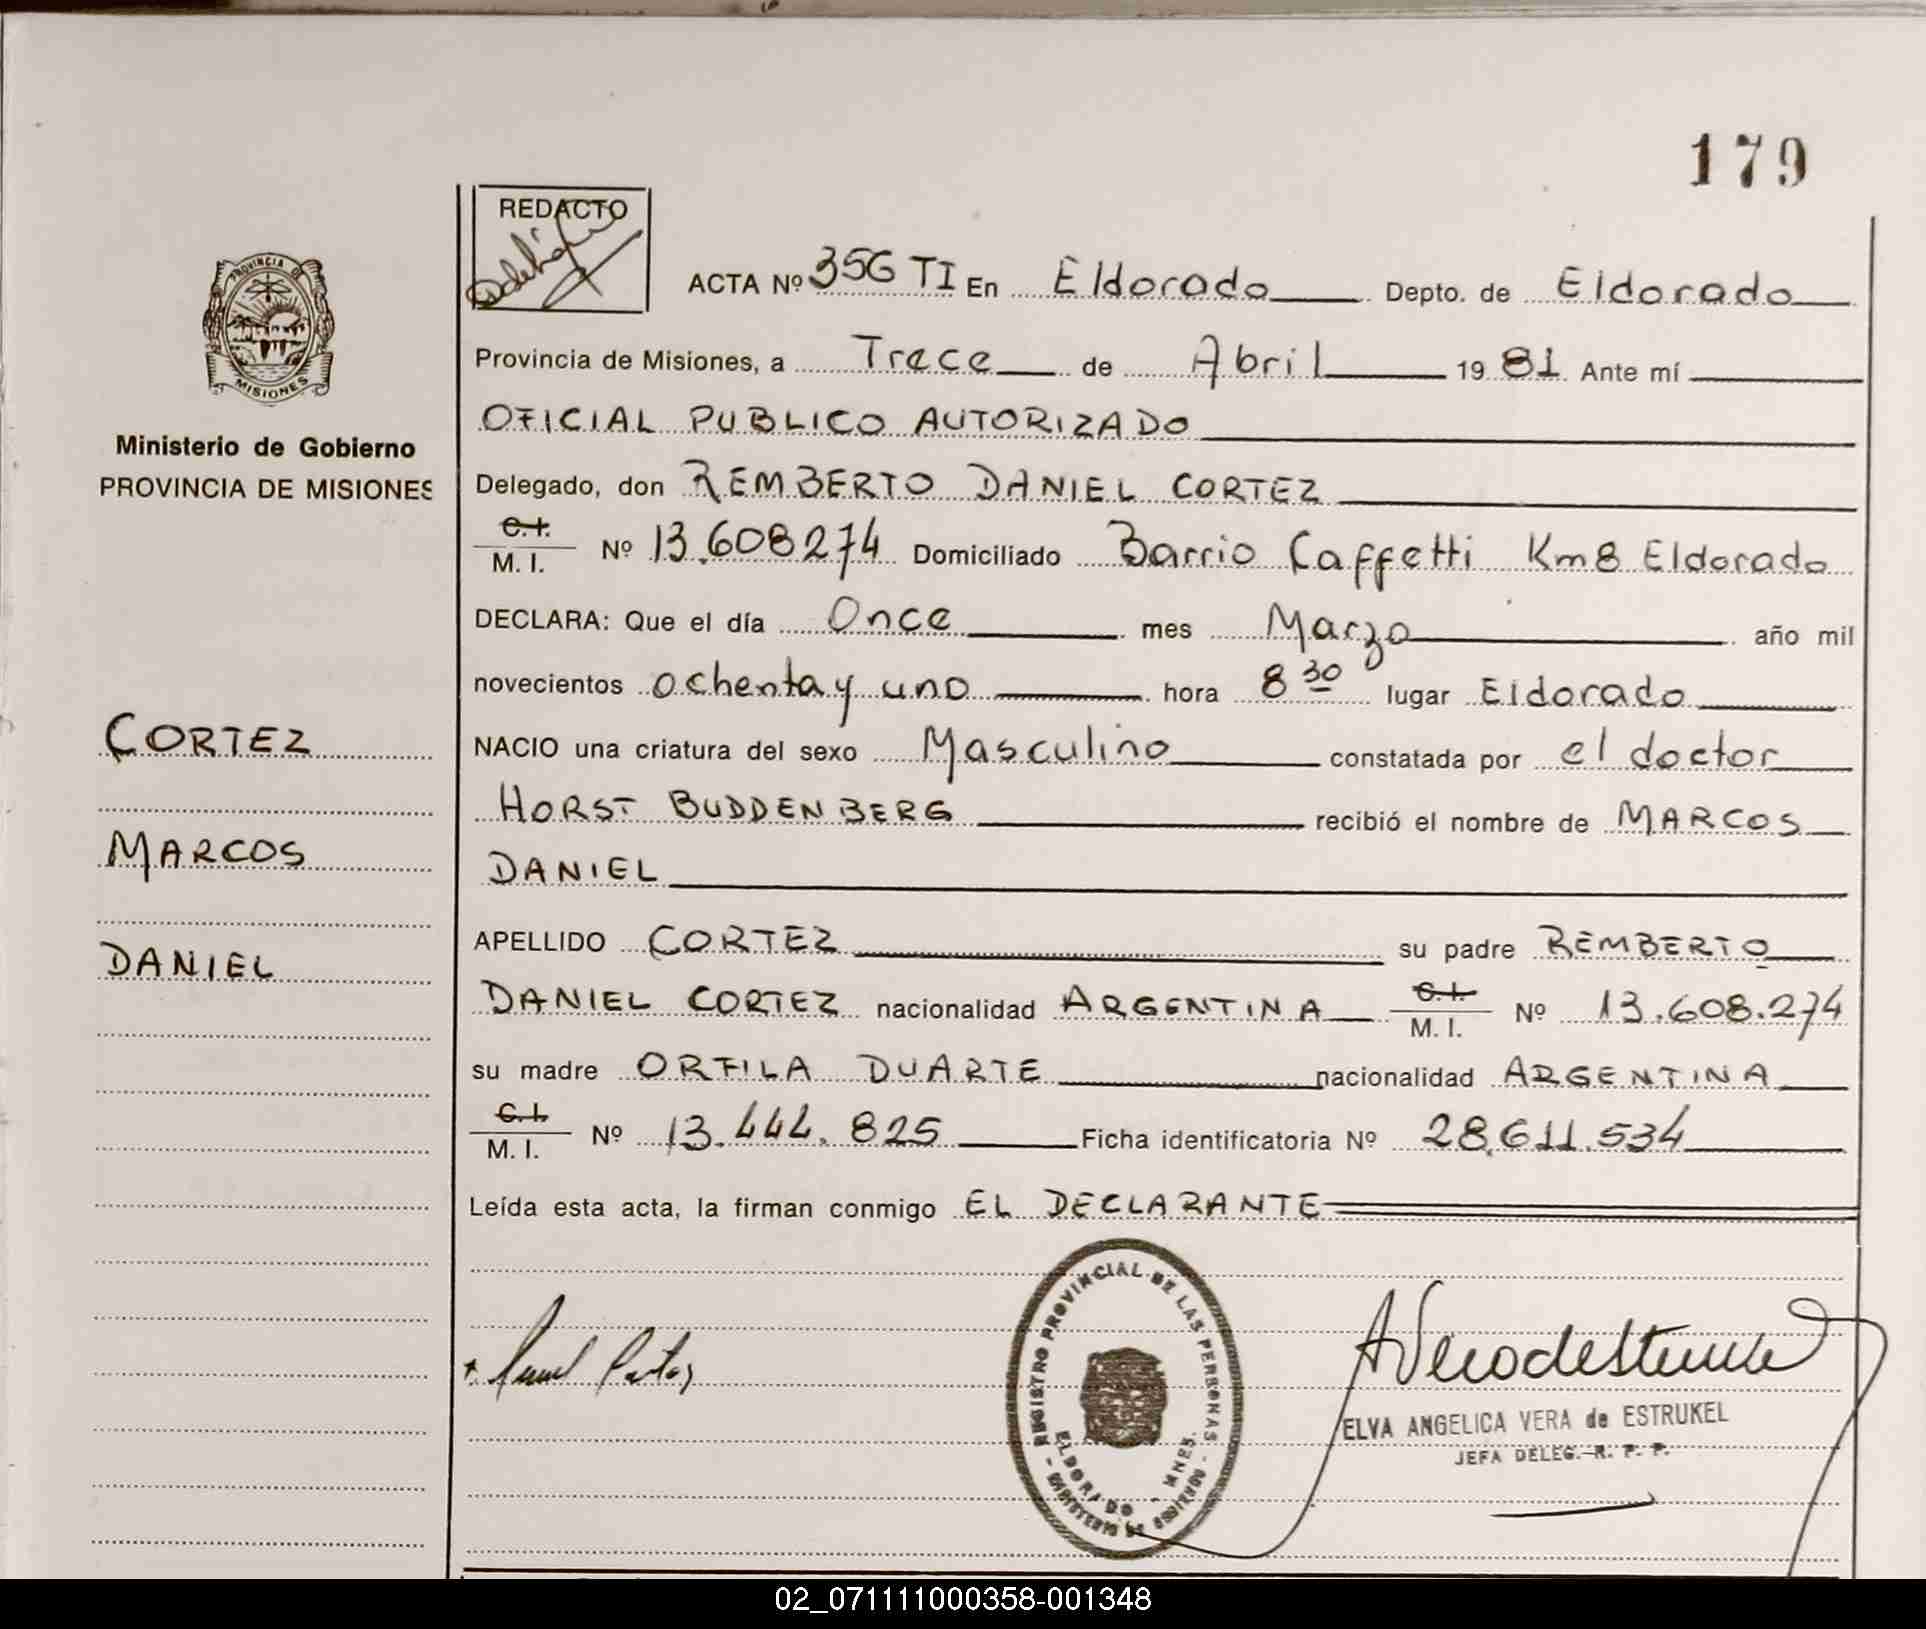 179
REDACTO
ACTA Nº 356 TI En Eldorado Depto. de Eldorado
PROVINCIA DE MISIONES
Provincia de Misiones, a Trece de Abril 1981 Ante mí
OFICIAL PUBLICO AUTORIZADO
Ministerio de Gobierno
PROVINCIA DE MISIONES
Delegado, don REMBERTO DANIEL CORTEZ
C.I. M.I. Nº 13.608274 Domiciliado Barrio Caffetti Km8 Eldorado
DECLARA: Que el día Once mes Marzo año mil
novecientos ochenta y uno hora 8 30 lugar Eldorado
CORTEZ
NACIO una criatura del sexo Masculino constatada por el doctor
HORST BUDDENBERG recibió el nombre de MARCOS
MARCOS
DANIEL
DANIEL
APELLIDO CORTEZ su padre REMBERTO
DANIEL CORTEZ nacionalidad ARGENTINA C.I. M.I. Nº 13.608.274
su madre ORFILA DUARTE nacionalidad ARGENTINA
C.I. M.I. Nº 13.444.825 Ficha identificatoria Nº 28.611.534
Leída esta acta, la firman conmigo EL DECLARANTE
REGISTRO PROVINCIAL DE LAS PERSONAS
ELDORADO - MNES.
MINISTERIO DE GOBIERNO
ELVA ANGELICA VERA de ESTRUKEL
JEFA DELEG.-R. P. P.
02_071111000358-001348